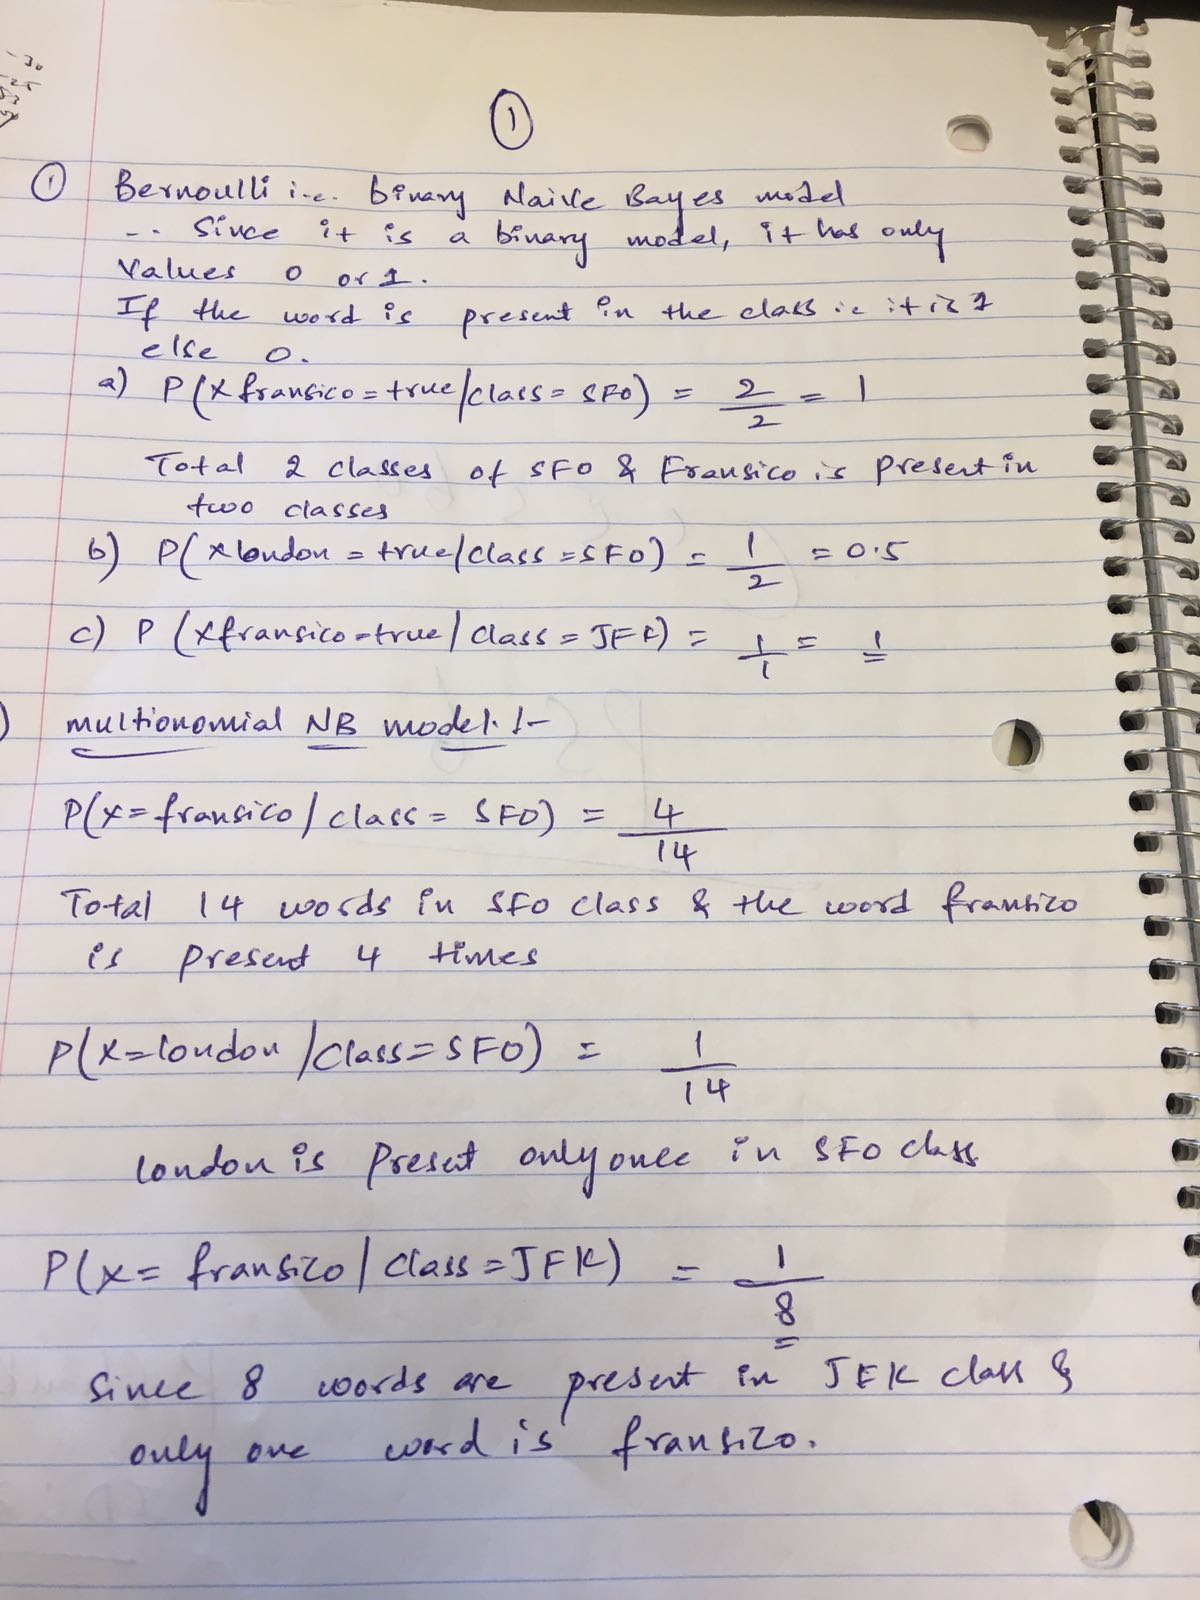 1
1 Bernoulli i.e. binary Naive Bayes model
-.. Since it is a binary model, it has only
Values 0 or 1.
If the word is present in the class i.e it is 1
else 0.
a) P(x fransico = true/class = SFO) = 2/2 = 1
Total 2 classes of SFO & Fransico is present in
two classes
b) P(x london = true/class = SFO) = 1/2 = 0.5
c) P (x fransico = true/class = JFK) = 1/1 = 1
) multionomial NB model :-
P(x = fransico/class = SFO) = 4/14
Total 14 words in SFO class & the word fransizo
is present 4 times
P(x = london/class = SFO) = 1/14
london is present only once in SFO class
P(x = fransizo/class = JFK) = 1/8
Since 8 words are present in JFK class &
only one word is fransizo.